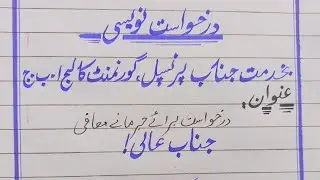 درخواست نویسی
بخدمت جناب پرنسپل، گورنمنٹ کالج ا۔ب۔ج
عنوان:
درخواست برائے جرمانے معافی
جناب عالی!